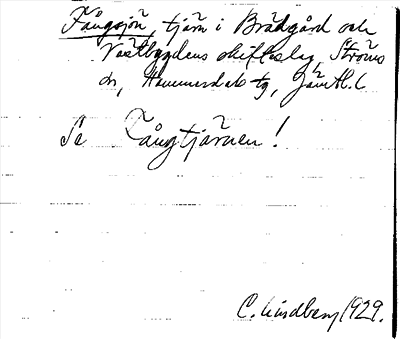 Fångsjön, tjärn i Brådgård och
Västbygdens skifteslag, Ströms
sn, Hammerdals tg, Jämtl. l
Se Långtjärnen!
C. Lindberg 1929.